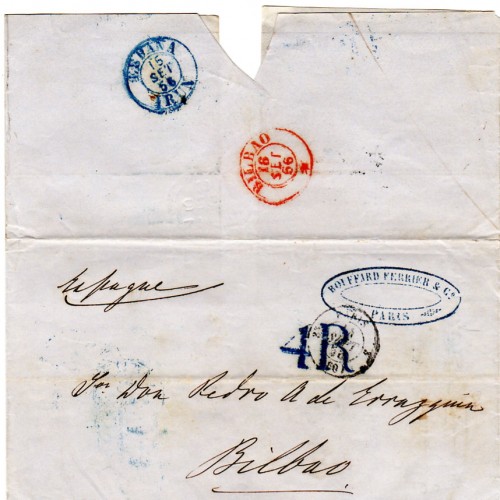 ESPAÑA
15
SET
56
IRUN
BILBAO
16
SET
56
Espagne
BOUFFARD FERRIER & Cº
PARIS
4R
Sor Don Pedro A de Errazquin
Bilbao